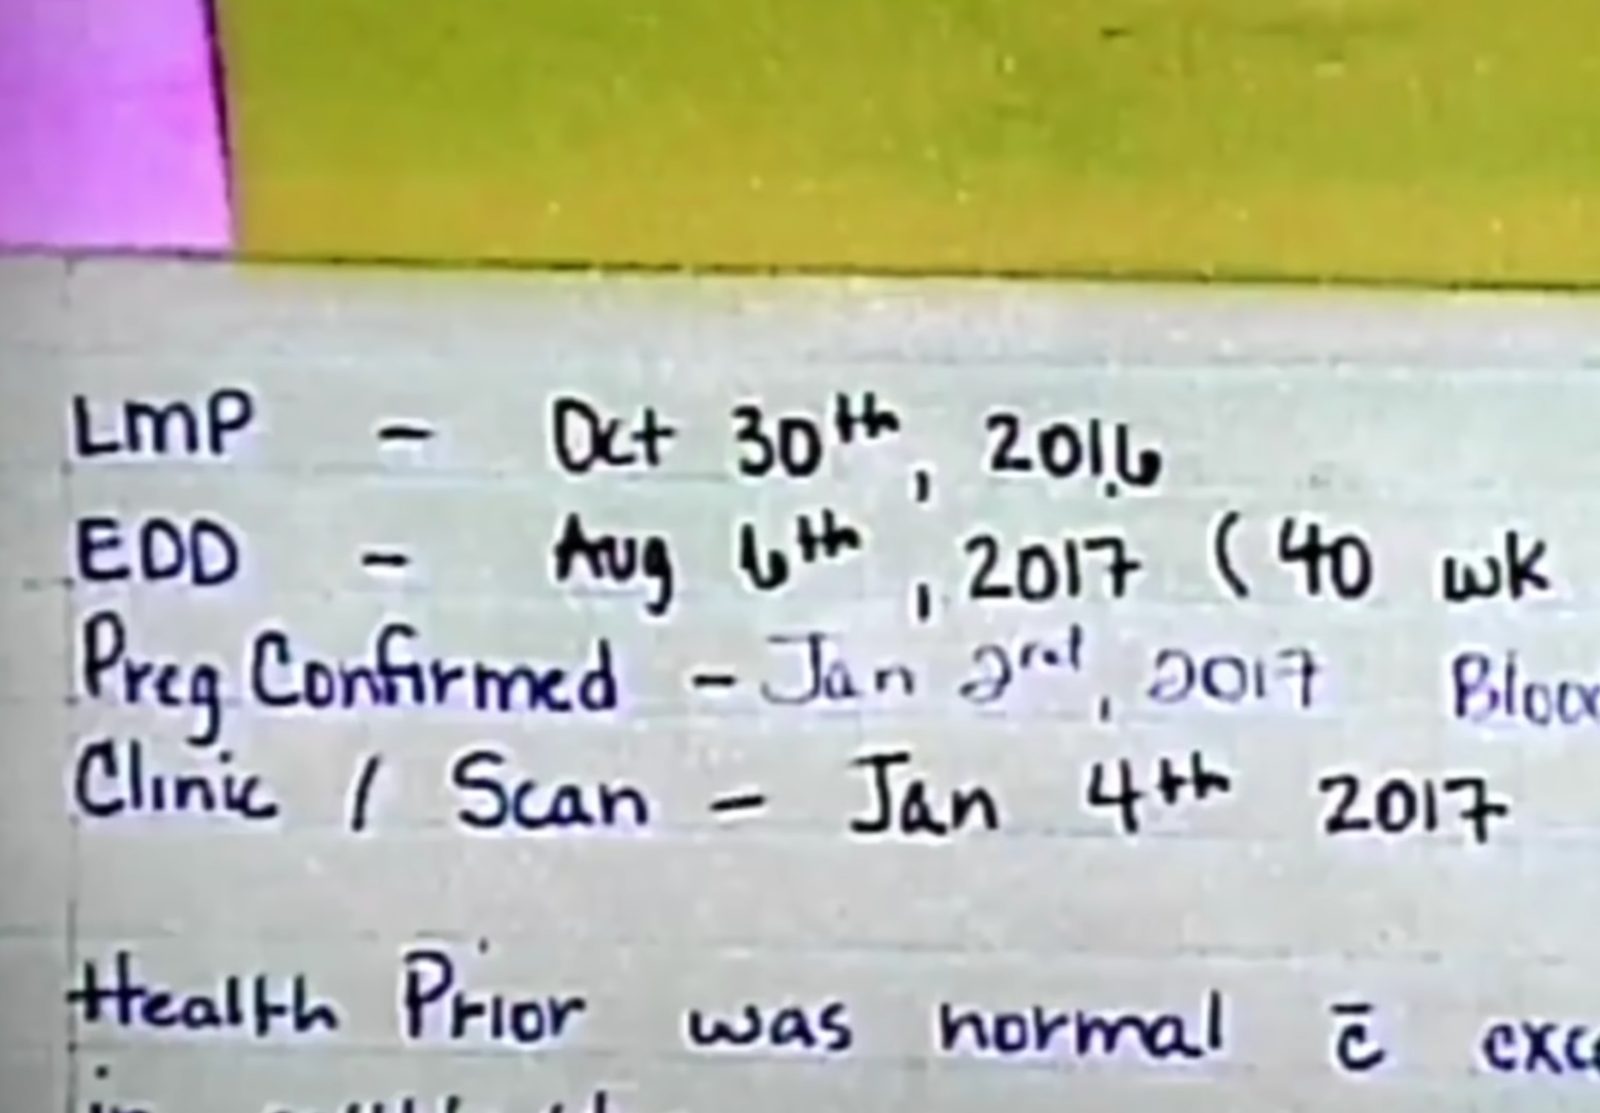 LMP - Oct 30th, 2016
EDD - Aug 6th, 2017 (40 wk
Preg Confirmed - Jan 2rd, 2017
Clinic / Scan - Jan 4th 2017
Health Prior was normal c̄